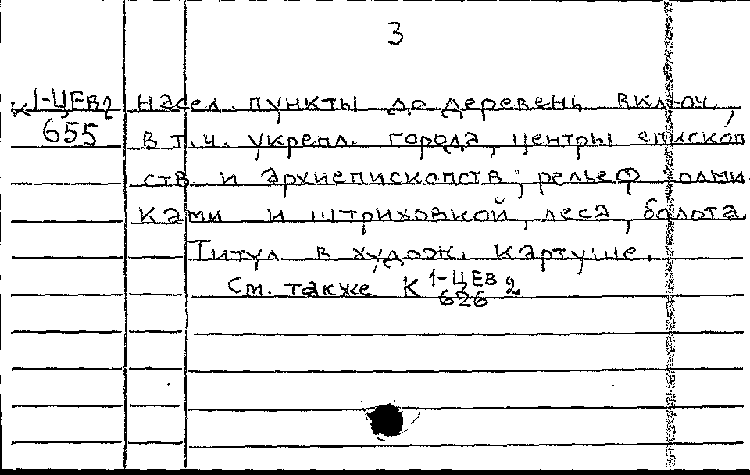 3
К 1-ЦЕВ 2 насел. пункты до деревень включ.,
655 в т.ч. укрепл. города, центры епископ
ств и архиепископств; рельеф холми
ками и штриховкой, леса, болота
Титул в худож. картуше.
См. также К 1-ЦЕВ 2
626